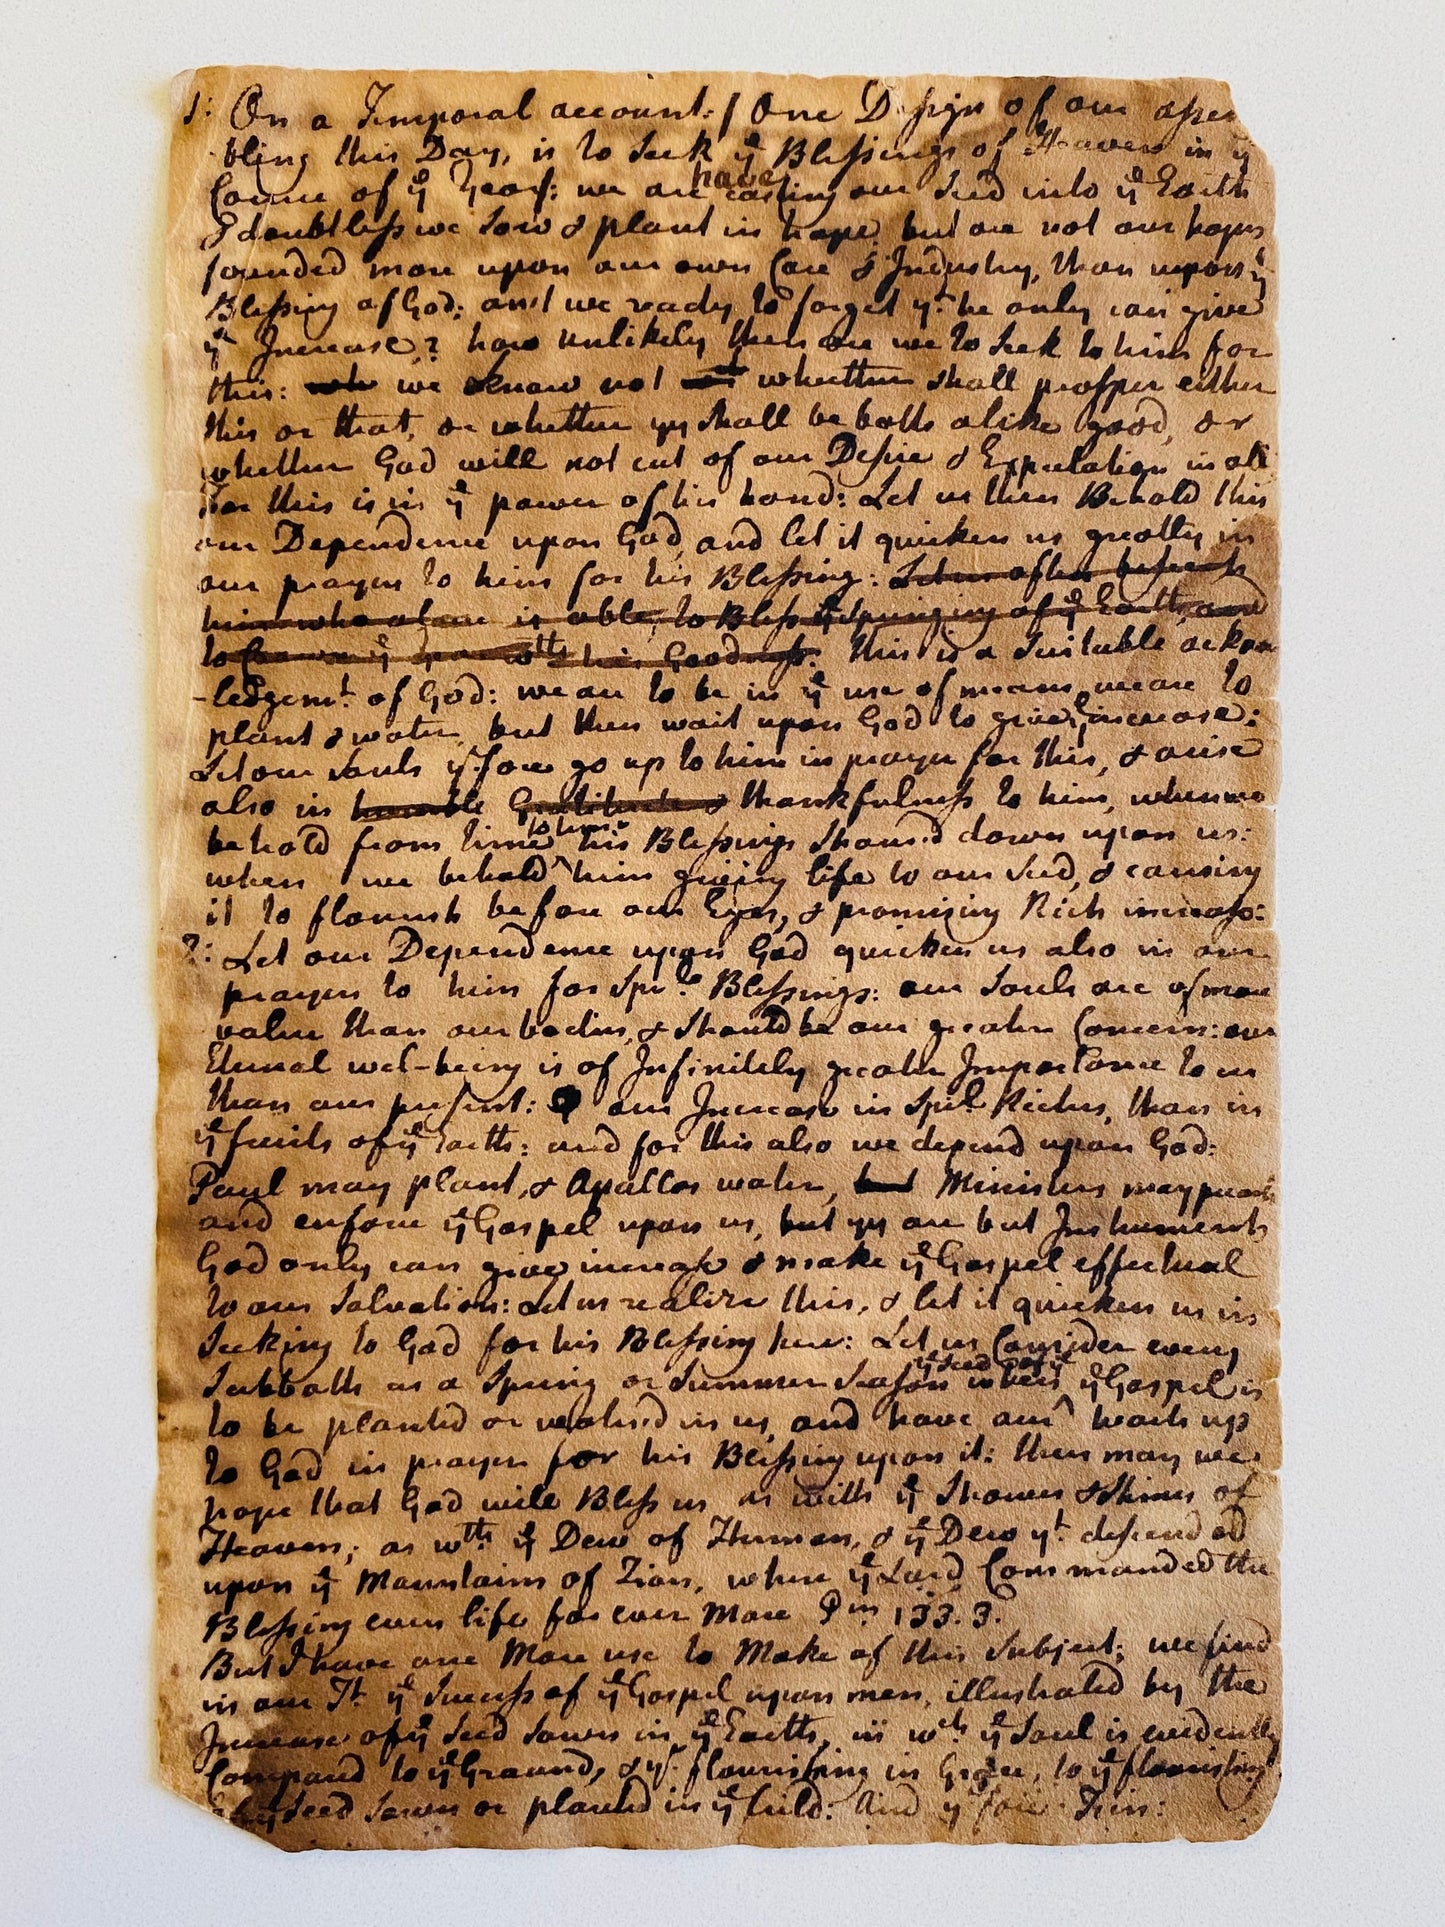 1: On a Temporal account: / One Design of our assem
bling this Day, is to seek ye Blessings of Heaven in ye
Course of ye Year: we are have casting our Seed into ye Earth
& doubtless we sow & plant in hope: but are not our hopes
founded more upon our own Care & Industry, than upon ye
Blessing of God: and we ready to forget yt he only can give
ye Increase? how unlikely then are we to seek to him for
this: we know not whether shall prosper either
this or that, or whether yy shall be both alike good, or
whether God will not cut of our Desire & Expectation in all
For this is in ye power of his hand: Let us then Behold this
our Dependence upon God, and let it quicken us greatly in
our prayers to him for his Blessing: Let us often beseech
him who alone is able, to Bless ye Springing of ye Earth, and
to Crown ye year wth his Goodness: this is a Suitable acknow
-ledgemt. of God: we are to be in ye use of means, we are to
plant & water, but then wait upon God to give ye increase:
Let our Souls yrfore go up to him in prayer for this, & arise
also in humble Gratitude & thankfulness to him, when we
behold from time to time his Blessings Showr'd down upon us:
when we behold him giving life to our Seed, & causing
it to flourish before our Eyes, & promising Rich increase:
2: Let our Dependence upon God quicken us also in our
prayers to him for Spirll. Blessings: our Souls are of more
value than our bodies, & Should be our greater Concern: our
Eternal wel-being is of Infinitely greater Importance to us
than our present: our Increase in Spil. Riches, than in
ye fruits of ye Earth: and for this also we depend upon God:
Paul may plant, & Apollos water, but Ministers may preach
and enforce ye Gospel upon us, but yy are but Instruments
God only can give increase & make ye Gospel effectual
to our Salvation: Let us realize this, & let it quicken us in
Seeking to God for his Blessing here: Let us Consider every
Sabbath as a Spring or Summer Season when ye Seed of ye Gospel is
to be planted or watered in us, and have our hearts up
to God in prayer for his Blessing upon it: then may we
hope that God will Bless us as with ye Showers & Shines of
Heaven; as wth ye Dew of Hermon, & ye Dew yt descended
upon ye Mountains of Zion, where ye Lord Commanded the
Blessing even life for ever More Psm 133. 3.
But I have one More use to Make of this Subject; we find
in our Tt ye Success of ye Gospel upon men, illustrated by the
Increase of ye Seed Sown in ye Earth, in wch ye Soul is evidently
Compared to ye Ground, & yr flourishing in Grace, to ye flourishing
Seed Sown or planted in ye field: And yrfore